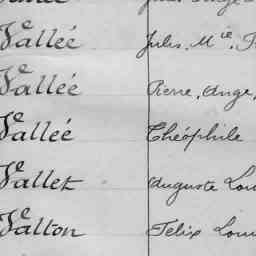 Vallée Jules, M^ie,
Vallée Pierre, Ange,
Vallée Théophile
Vallet Auguste Lou
Valton Felix Loui